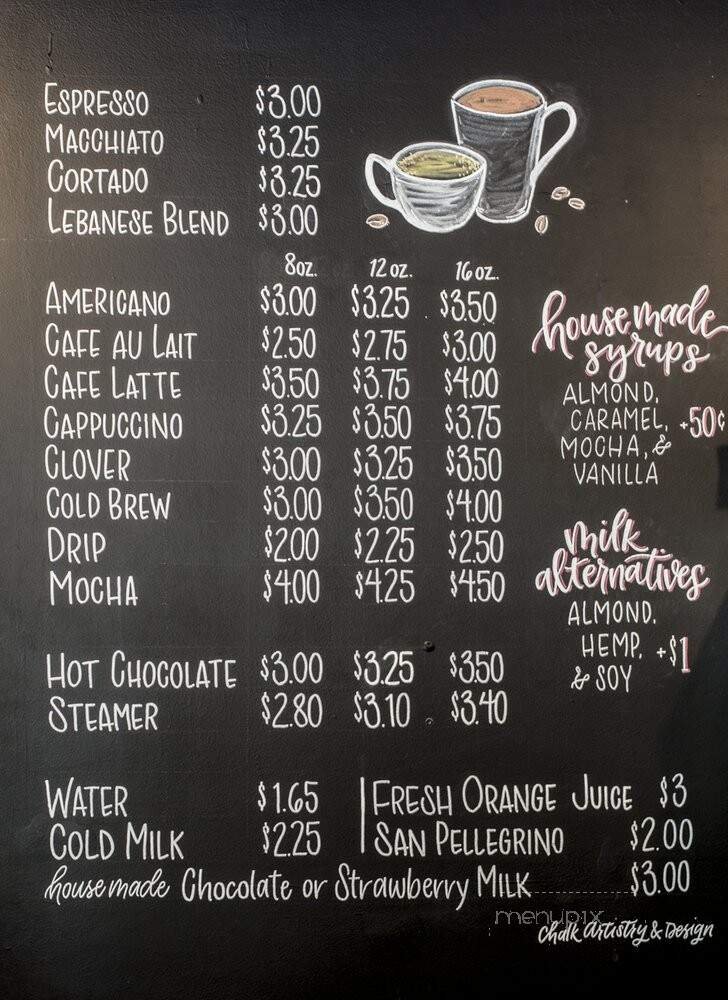 Espresso $3.00
Macchiato $3.25
Cortado $3.25
Lebanese Blend $3.00
8oz. 12 oz. 16 oz.
Americano $3.00 $3.25 $3.50
Cafe au Lait $2.50 $2.75 $3.00
Cafe Latte $3.50 $3.75 $4.00
Cappuccino $3.25 $3.50 $3.75
Clover $3.00 $3.25 $3.50
Cold Brew $3.00 $3.50 $4.00
Drip $2.00 $2.25 $2.50
Mocha $4.00 $4.25 $4.50
Hot Chocolate $3.00 $3.25 $3.50
Steamer $2.80 $3.10 $3.40
house made
syrups
ALMOND,
CARAMEL, +50¢
MOCHA, &
VANILLA
milk
alternatives
ALMOND,
HEMP, +$1
& SOY
Water $1.65
Cold Milk $2.25
Fresh Orange Juice $3
San Pellegrino $2.00
house made Chocolate or Strawberry Milk $3.00
menupix
Chalk Artistry & Design